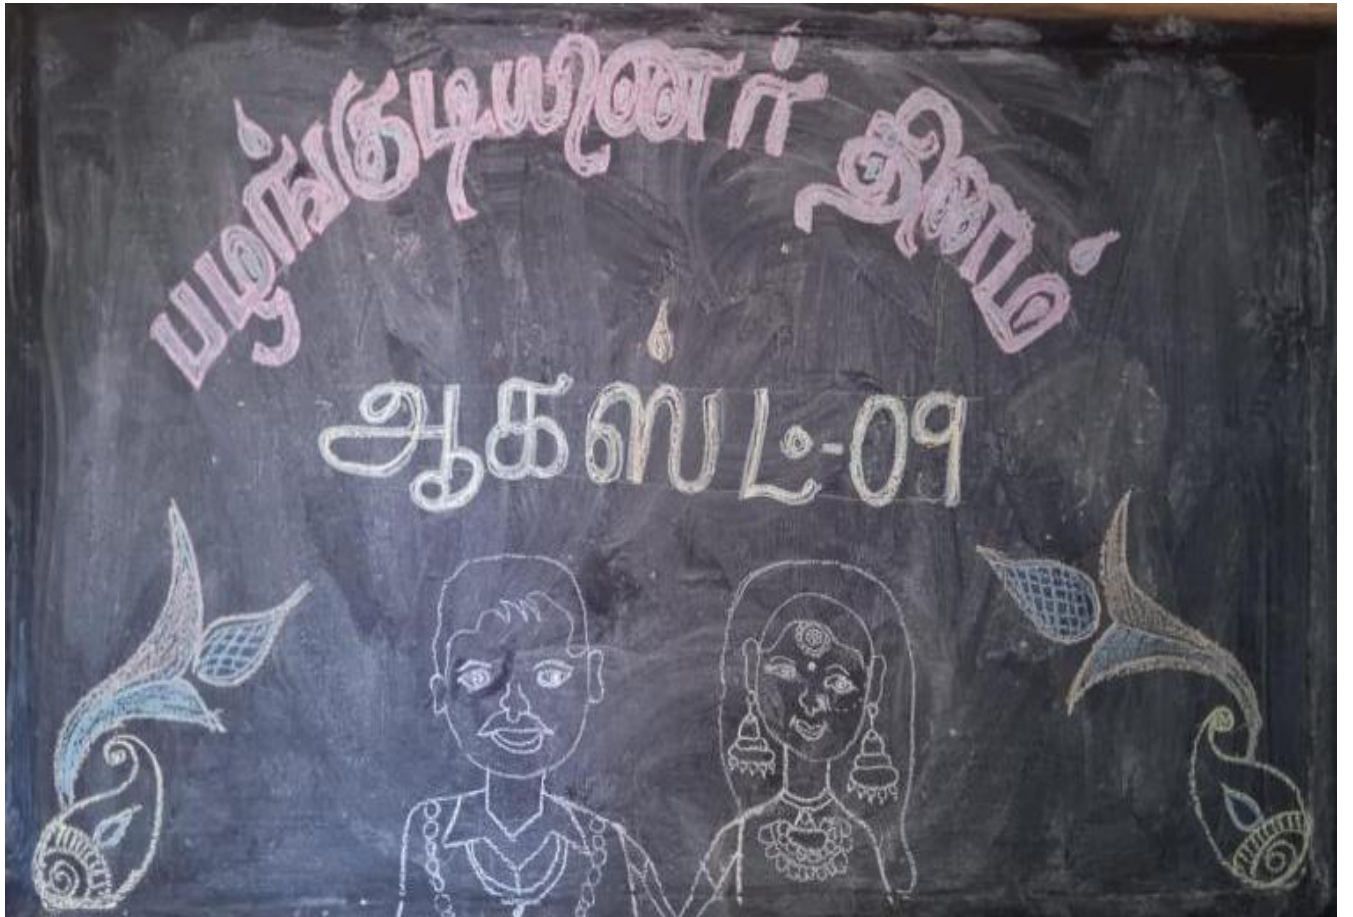 பழங்குடியினர் தினம்
ஆகஸ்ட்-09